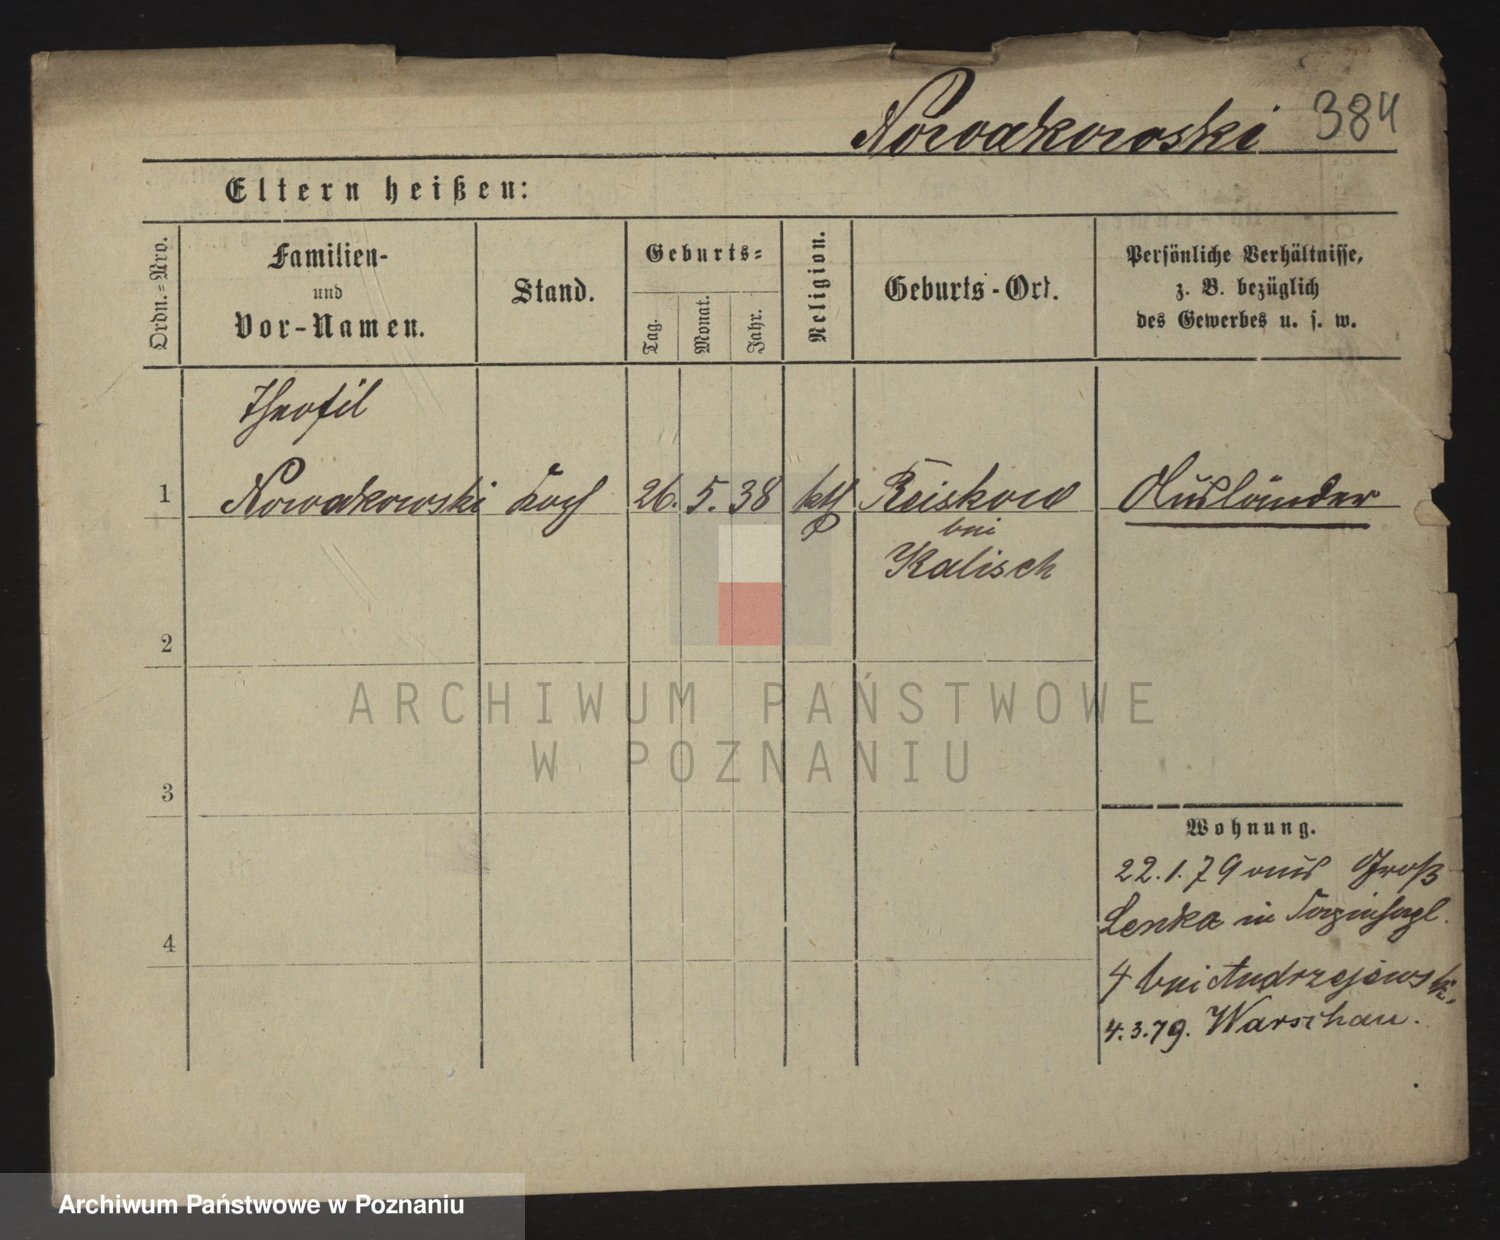 Nowakowski 384
Eltern heißen:
Ordn.-Nro.
Familien-
und
Vor-Namen.
Stand.
Geburts-
Tag.
Monat.
Jahr.
Religion.
Geburts-Ort.
Persönliche Verhältnisse,
z. B. bezüglich
des Gewerbes u. s. w.
Theofil
1 Nowakowski Koch 26. 5. 38 kth Reiskow Ausländer
bei
Kalisch
2
3
4
Wohnung.
22.1.79 aus Groß
Lenka in
4 bei Andrzejewski.
4.3.79. Warschau.
ARCHIWUM PAŃSTWOWE
W POZNANIU
Archiwum Państwowe w Poznaniu